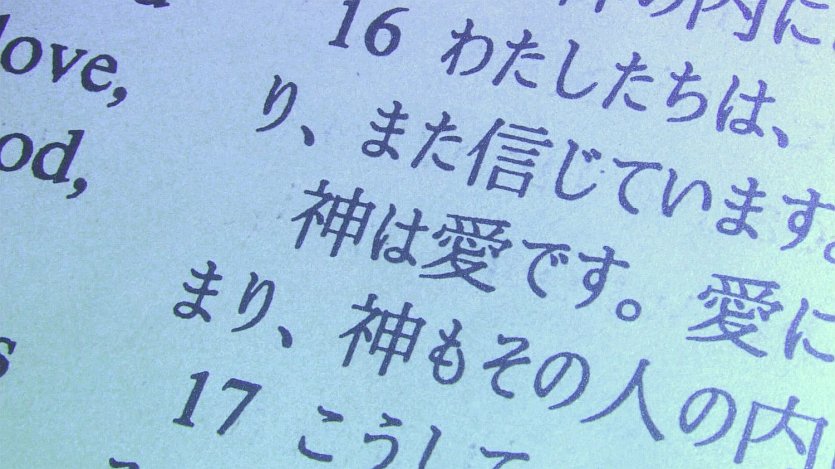 love,
od,
s
の内に
16 わたしたちは、
り、また信じています。
神は愛です。愛に
まり、神もその人の内
17 こうして